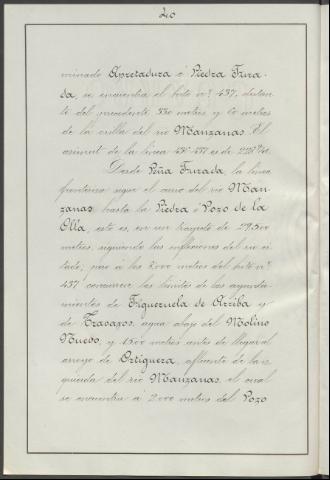 20
minado Apretadura ó Piedra Fura-
da, se encuentra el hito nº 437, distan-
te del precedente 330 metros y 60 metros
de la orilla del río Manzanas. El
azimut de la línea 436-437 es de 228º
Desde Peña Furada, la línea
fronteriza sigue el curso del río Man-
zanas hasta la Piedra ó Pozo de la
Olla, esto es, en un trayecto de 29.500
metros, siguiendo las inflexiones del río ci-
tado; pero á los 8.000 metros del hito nº
437 concurren los límites de los ayunta-
mientos de Figueruela de Arriba y
de Trabazos, agua abajo del Molino
Nuevo, y 1500 metros antes de llegar al
arroyo de Ortiguera, afluente de la iz-
quierda del río Manzanas, el cual
se encuentra á 2.000 metros del Pozo